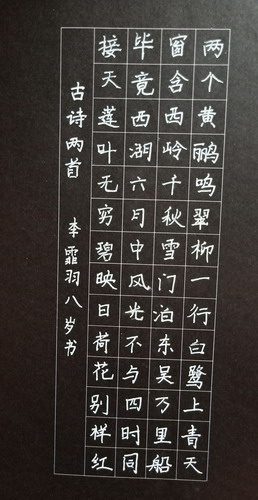 两个黄鹂鸣翠柳一行白鹭上青天
窗含西岭千秋雪门泊东吴万里船
毕竟西湖六月中风光不与四时同
接天莲叶无穷碧映日荷花别样红
古诗两首 李霏羽八岁书